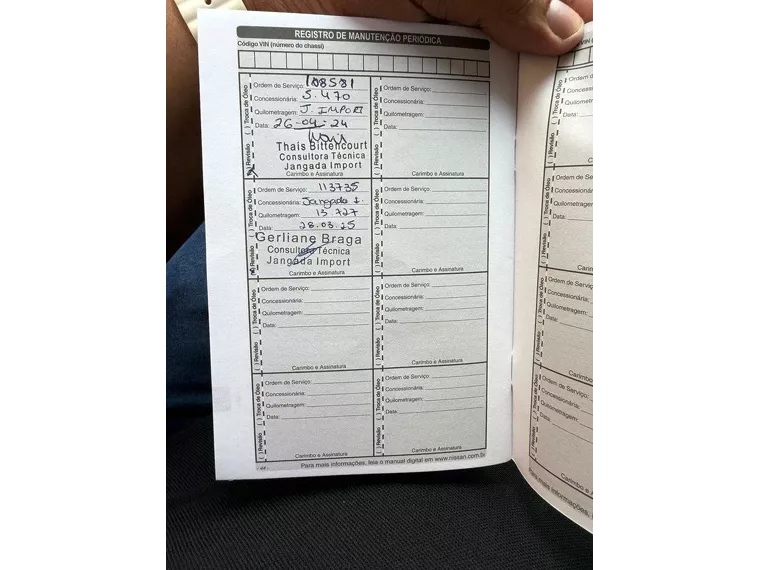 REGISTRO DE MANUTENÇÃO PERIODICA
Código VIN (número do chassi)
( ) Revisão ( ) Troca de Óleo
Ordem de Serviço: 108581
Concessionária: 5.470
Quilometragem: J. IMPORT
Data: 26-04-24
Thais Bittencourt
Consultora Técnica
Jangada Import
Carimbo e Assinatura
( ) Revisão ( ) Troca de Óleo
Ordem de Serviço:
Concessionária:
Quilometragem:
Data:
Carimbo e Assinatura
Revisão ( ) Troca de Óleo
Ordem de Serviço: 113735
Concessionária: Jangada I.
Quilometragem: 13.727
Data: 28.03.25
Gerliane Braga
Consultora Técnica
Jangada Import
Carimbo e Assinatura
( ) Revisão ( ) Troca de Óleo
Ordem de Serviço:
Concessionária:
Quilometragem:
Data:
Carimbo e Assinatura
( ) Revisão ( ) Troca de Óleo
Ordem de Serviço:
Concessionária:
Quilometragem:
Data:
Carimbo e Assinatura
( ) Revisão ( ) Troca de Óleo
Ordem de Serviço:
Concessionária:
Quilometragem:
Data:
Carimbo e Assinatura
( ) Revisão ( ) Troca de Óleo
Ordem de Serviço:
Concessionária:
Quilometragem:
Data:
Carimbo e Assinatura
( ) Revisão ( ) Troca de Óleo
Ordem de Serviço:
Concessionária:
Quilometragem:
Data:
Carimbo e Assinatura
- 44 - Para mais informações, leia o manual digital em www.nissan.com.br
Código VIN (núm
( ) Revisão ( ) Troca de Óleo
Ordem de
Concessio
Quilometra
Data:
( ) Revisão ( ) Troca de Óleo
Ordem de Serv
Concessionár
Quilometrage
Data:
Cari
( ) Revisão ( ) Troca de Óleo
Ordem de Servi
Concessionária
Quilometragem
Data:
Carimbo
( ) Revisão ( ) Troca de Óleo
Ordem de Serviço:
Concessionária:
Quilometragem:
Data:
Carimbo e Assin
Para mais informações,